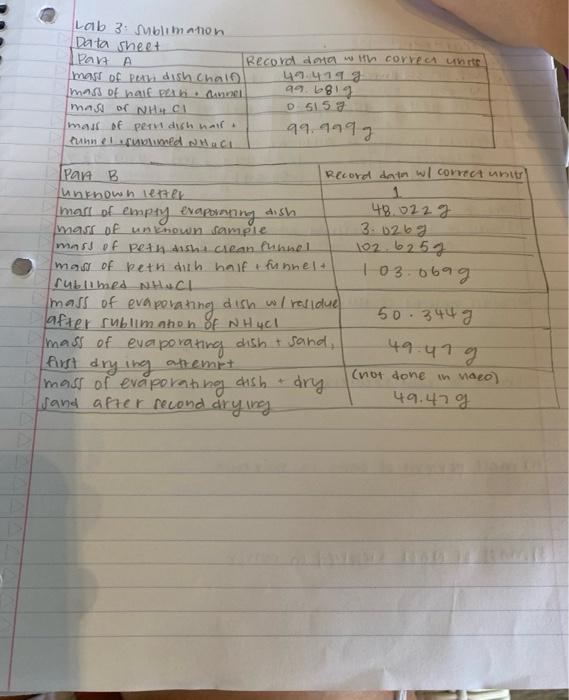 Lab 3: Sublimation
Data sheet
Part A Record data with correct units
mass of petri dish (half) 49.479 g
mass of half petri + funnel 99.681g
mass of NH4Cl 0.515g
mass of petri dish half + 99.999g
funnel + sublimed NH4Cl
Part B Record data w/ correct units
unknown letter 1
mass of empty evaporating dish 48.022g
mass of unknown sample 3.026g
mass of petri dish + clean funnel 102.625g
mass of petri dish half + funnel + 103.069g
sublimed NH4Cl
mass of evaporating dish w/ residue
after sublimation of NH4Cl 50.344g
mass of evaporating dish + sand, 49.47g
first drying attempt
mass of evaporating dish + dry (not done in video)
sand after second drying 49.47g